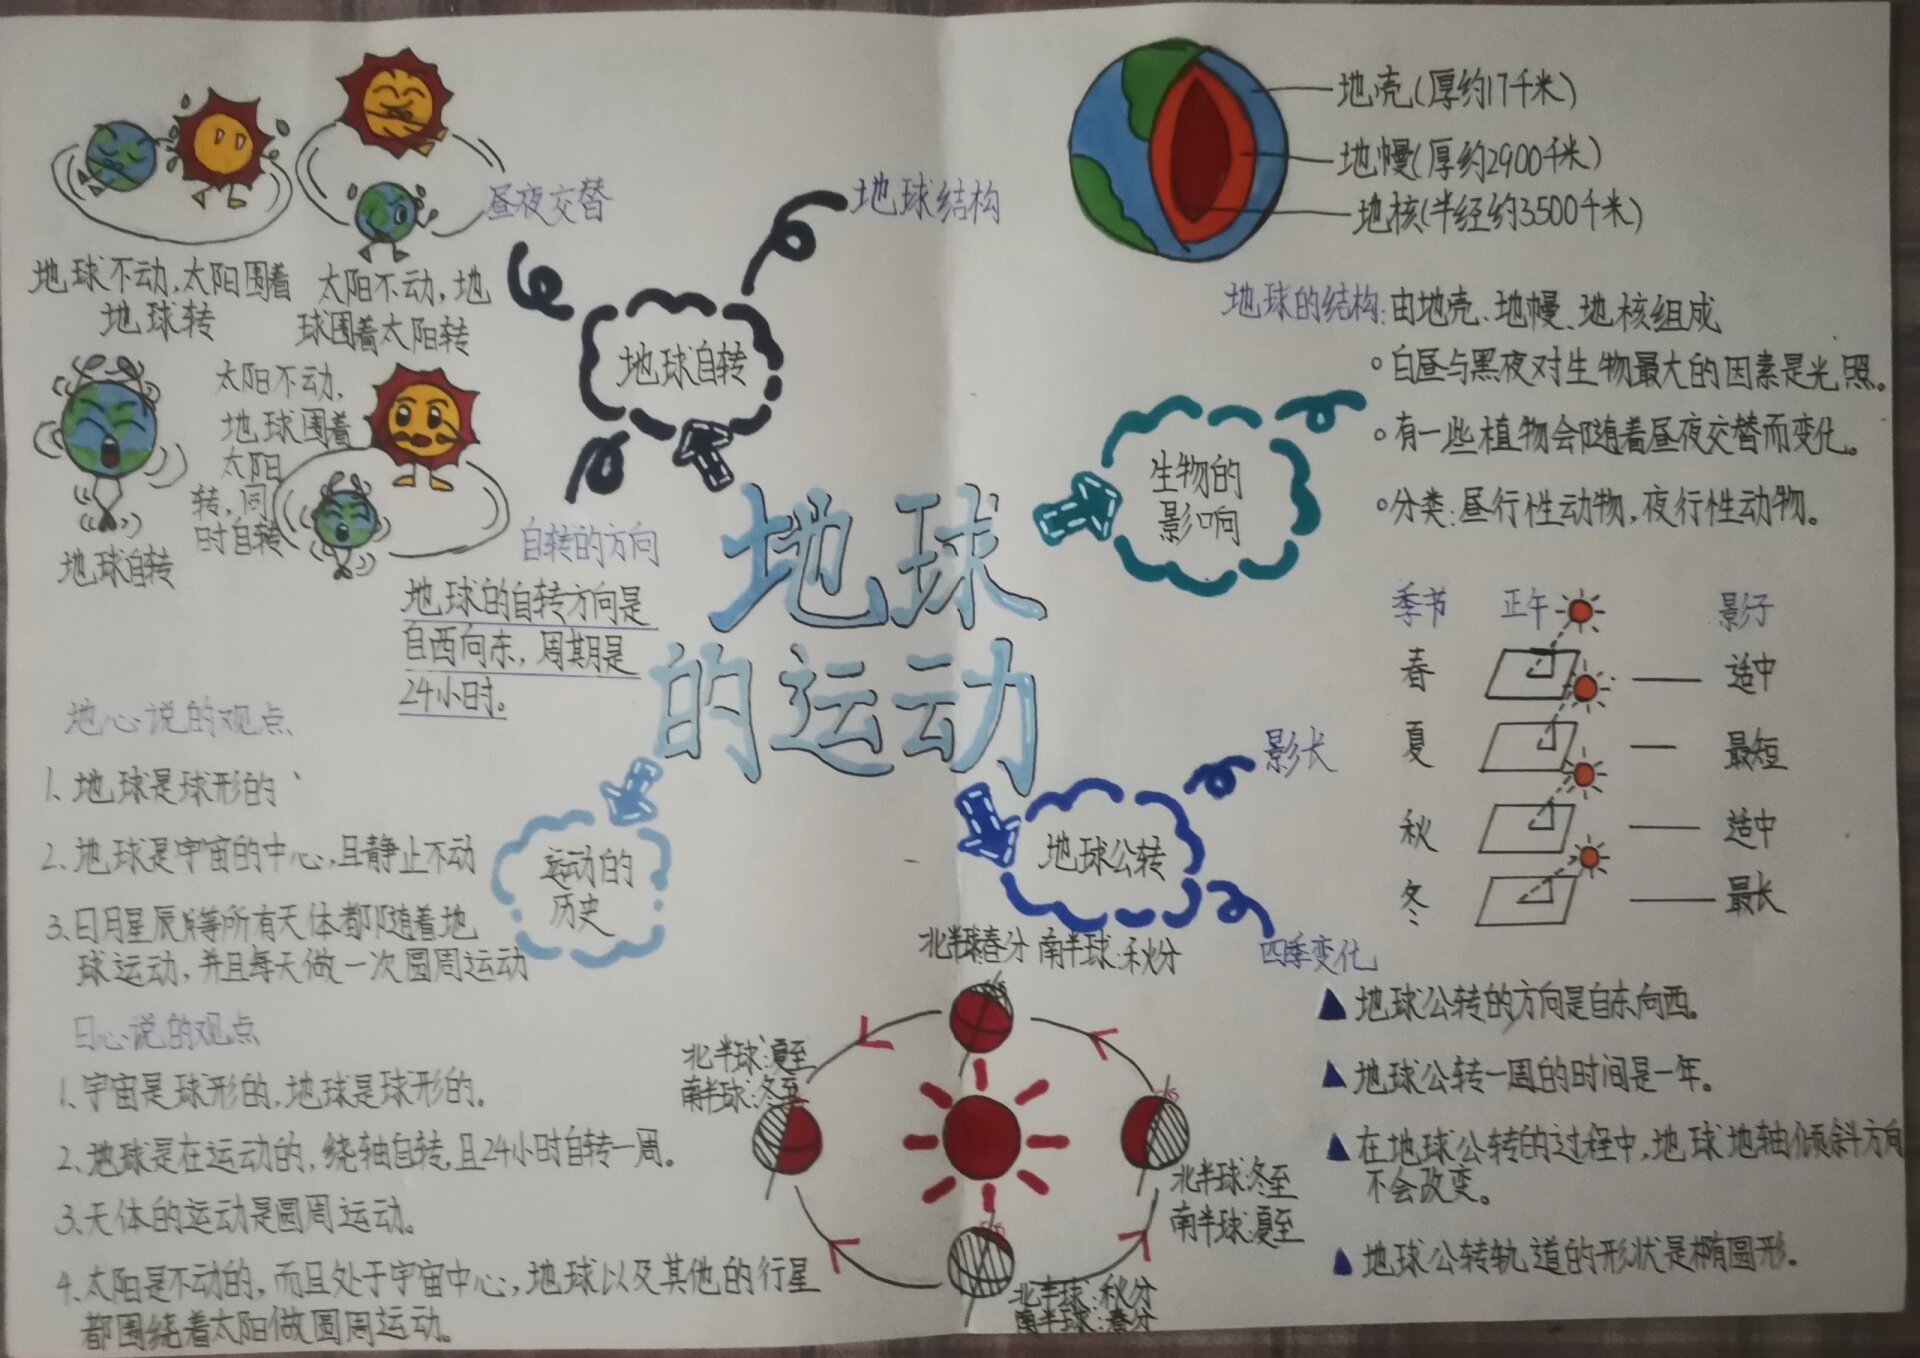 地球的运动
地球自转
昼夜交替
地球不动,太阳围着
地球转
太阳不动,地
球围着太阳转
地球自转
太阳不动,
地球围着
太阳
转,同
时自转
自转的方向
地球的自转方向是
自西向东,周期是
24小时。
地球结构
地壳(厚约17千米)
地幔(厚约2900千米)
地核(半经约3500千米)
地球的结构:由地壳、地幔、地核组成
生物的
影响
白昼与黑夜对生物最大的因素是光照。
有一些植物会随着昼夜交替而变化。
分类:昼行性动物,夜行性动物。
地球公转
影长
季节 正午 影子
春 适中
夏 最短
秋 适中
冬 最长
四季变化
地球公转的方向是自东向西。
地球公转一周的时间是一年。
在地球公转的过程中,地球地轴倾斜方向
不会改变。
地球公转轨道的形状是椭圆形。
北半球春分 南半球:秋分
北半球:夏至
南半球:冬至
北半球:冬至
南半球:夏至
北半球:秋分
南半球:春分
运动的
历史
地心说的观点
1、地球是球形的
2、地球是宇宙的中心,且静止不动
3、日月星辰等所有天体都随着地
球运动,并且每天做一次圆周运动
日心说的观点
1、宇宙是球形的,地球是球形的。
2、地球是在运动的,绕轴自转,且24小时自转一周。
3、天体的运动是圆周运动。
4、太阳是不动的,而且处于宇宙中心,地球以及其他的行星
都围绕着太阳做圆周运动。